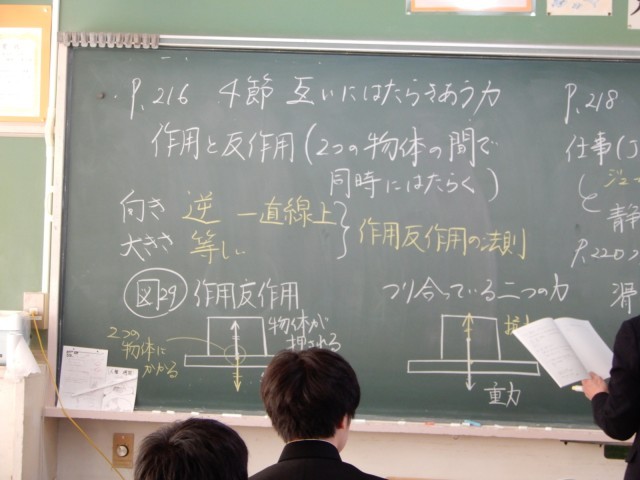 P.216 4節 互いにはたらきあう力
作用と反作用(2つの物体の間で
同時にはたらく)
向き 逆 一直線上
大きさ 等しい
作用反作用の法則
図29 作用反作用
物体が
押される
2つの
物体に
かかる
つり合っている二つの力
重力
P.218
仕事(J
と
静
P.220
滑